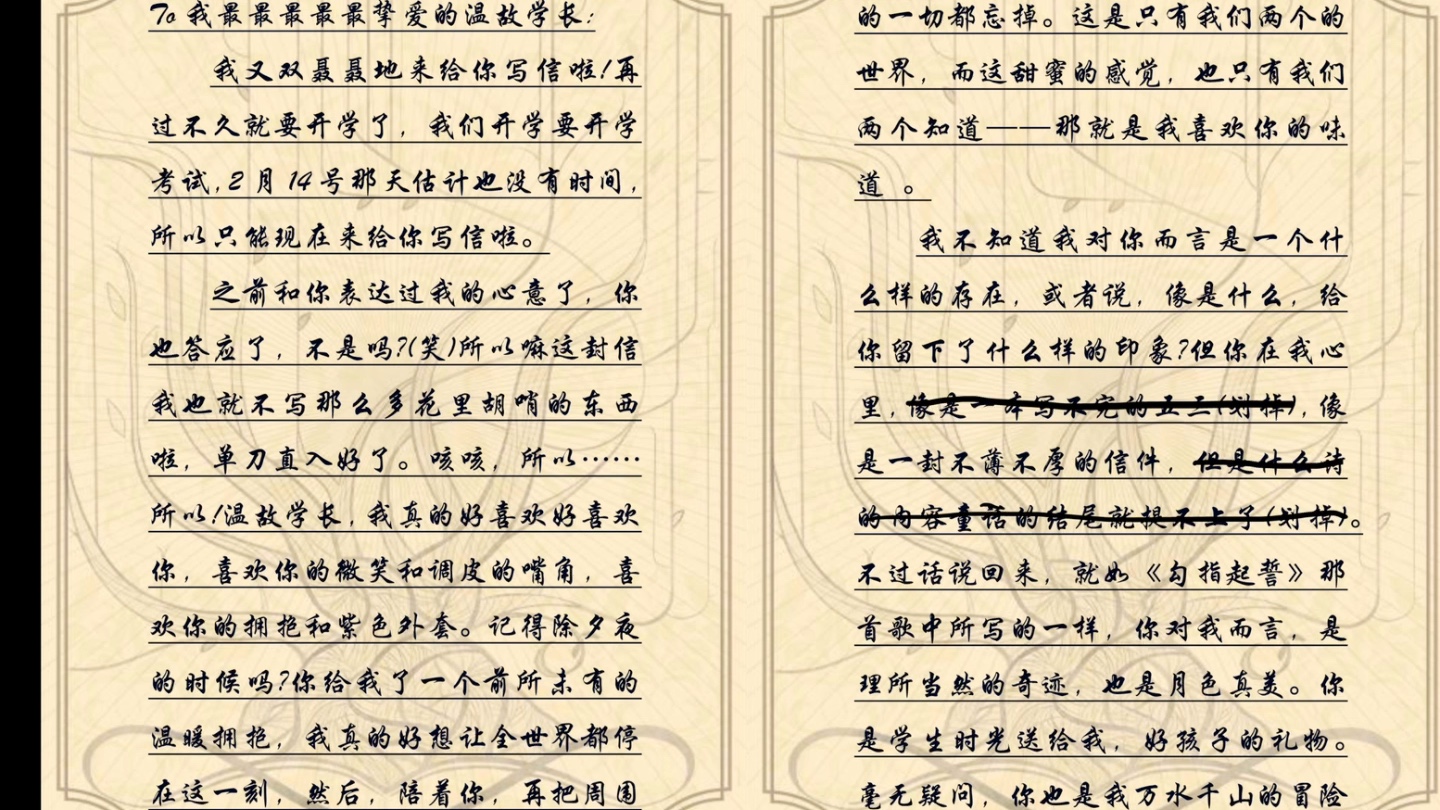 To 我最最最最最挚爱的温故学长：
我又双叒叕地来给你写信啦！再
过不久就要开学了，我们开学要开学
考试，2月14号那天估计也没有时间，
所以只能现在来给你写信啦。
之前和你表达过我的心意了，你
也答应了，不是吗？（笑）所以嘛这封信
我也就不写那么多花里胡哨的东西
啦，单刀直入好了。咳咳，所以……
所以！温故学长，我真的好喜欢好喜欢
你，喜欢你的微笑和调皮的嘴角，喜
欢你的拥抱和紫色外套。记得除夕夜
的时候吗？你给我了一个前所未有的
温暖拥抱，我真的好想让全世界都停
在这一刻，然后，陪着你，再把周围
的一切都忘掉。这是只有我们两个的
世界，而这甜蜜的感觉，也只有我们
两个知道——那就是我喜欢你的味
道 。
我不知道我对你而言是一个什
么样的存在，或者说，像是什么，给
你留下了什么样的印象？但你在我心
里，像是一本写不完的五三（划掉），像
是一封不薄不厚的信件，但是什么诗
的内容童话的结尾就提不上了（划掉）。
不过话说回来，就如《勾指起誓》那
首歌中所写的一样，你对我而言，是
理所当然的奇迹，也是月色真美。你
是学生时光送给我，好孩子的礼物。
毫无疑问，你也是我万水千山的冒险